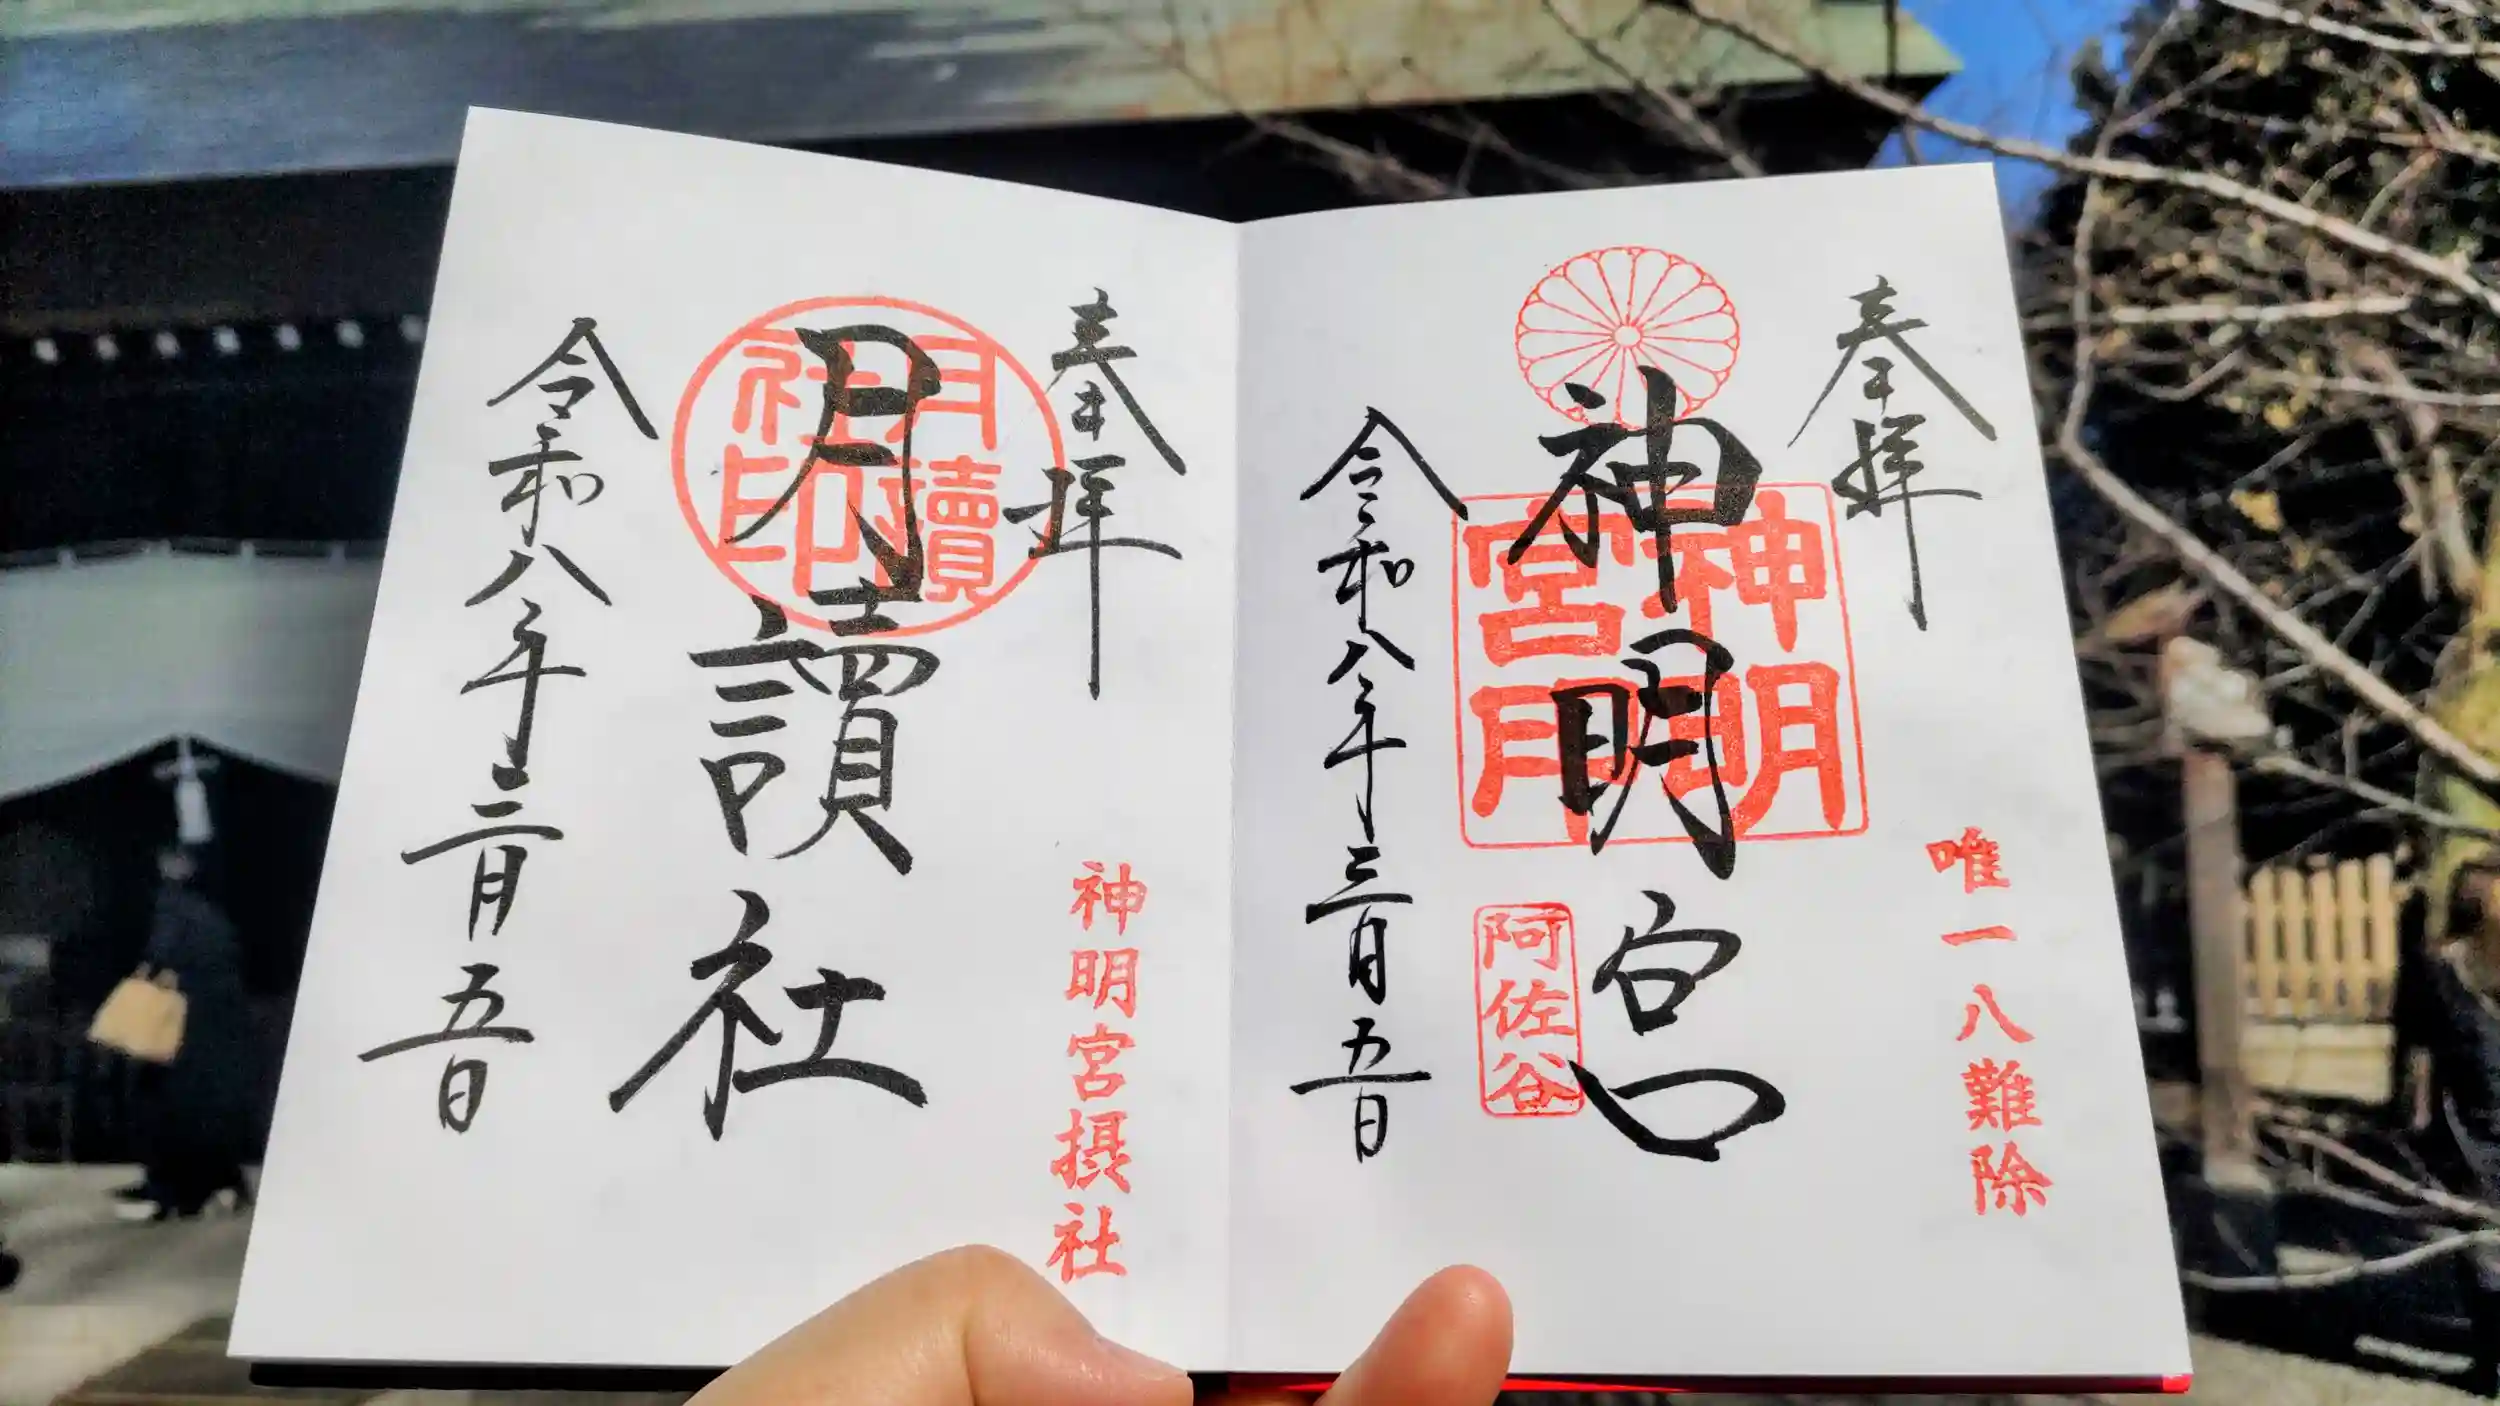 奉拝
神明宮
令和八年三月五日
唯一八難除
神明宮印
阿佐谷
奉拝
月讀社
令和八年三月五日
神明宮摂社
月讀社印